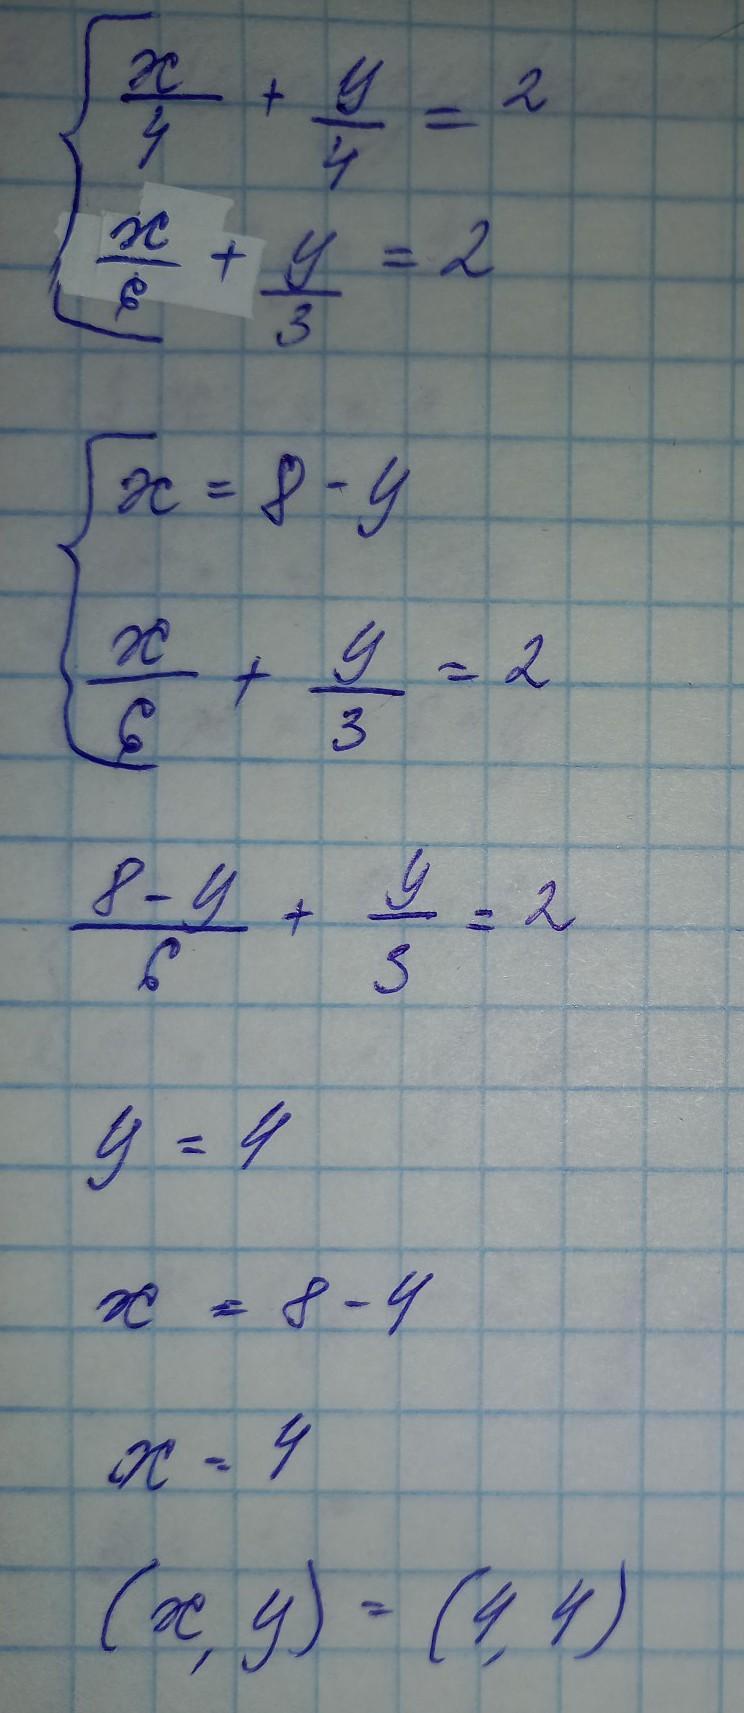 x/4 + y/4 = 2
x/6 + y/3 = 2
x = 8 - y
x/6 + y/3 = 2
8-y/6 + y/3 = 2
y = 4
x = 8 - 4
x = 4
(x, y) = (4, 4)